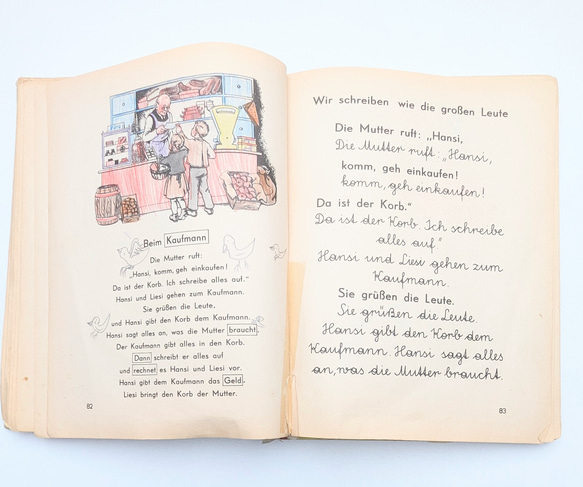 Beim Kaufmann
Die Mutter ruft:
„Hansi, komm, geh einkaufen!
Da ist der Korb. Ich schreibe alles auf."
Hansi und Liesi gehen zum Kaufmann.
Sie grüßen die Leute,
und Hansi gibt den Korb dem Kaufmann.
Hansi sagt alles an, was die Mutter braucht.
Der Kaufmann gibt alles in den Korb.
Dann schreibt er alles auf
und rechnet es Hansi und Liesi vor.
Hansi gibt dem Kaufmann das Geld.
Liesi bringt den Korb der Mutter.
82
Wir schreiben wie die großen Leute
Die Mutter ruft: „Hansi,
Die Mutter ruft: „Hansi,
komm, geh einkaufen!
komm, geh einkaufen!
Da ist der Korb."
Da ist der Korb. Ich schreibe
alles auf."
Hansi und Liesi gehen zum
Kaufmann.
Sie grüßen die Leute.
Sie grüßen die Leute
Hansi gibt den Korb dem
Kaufmann. Hansi sagt alles
an, was die Mutter braucht.
83